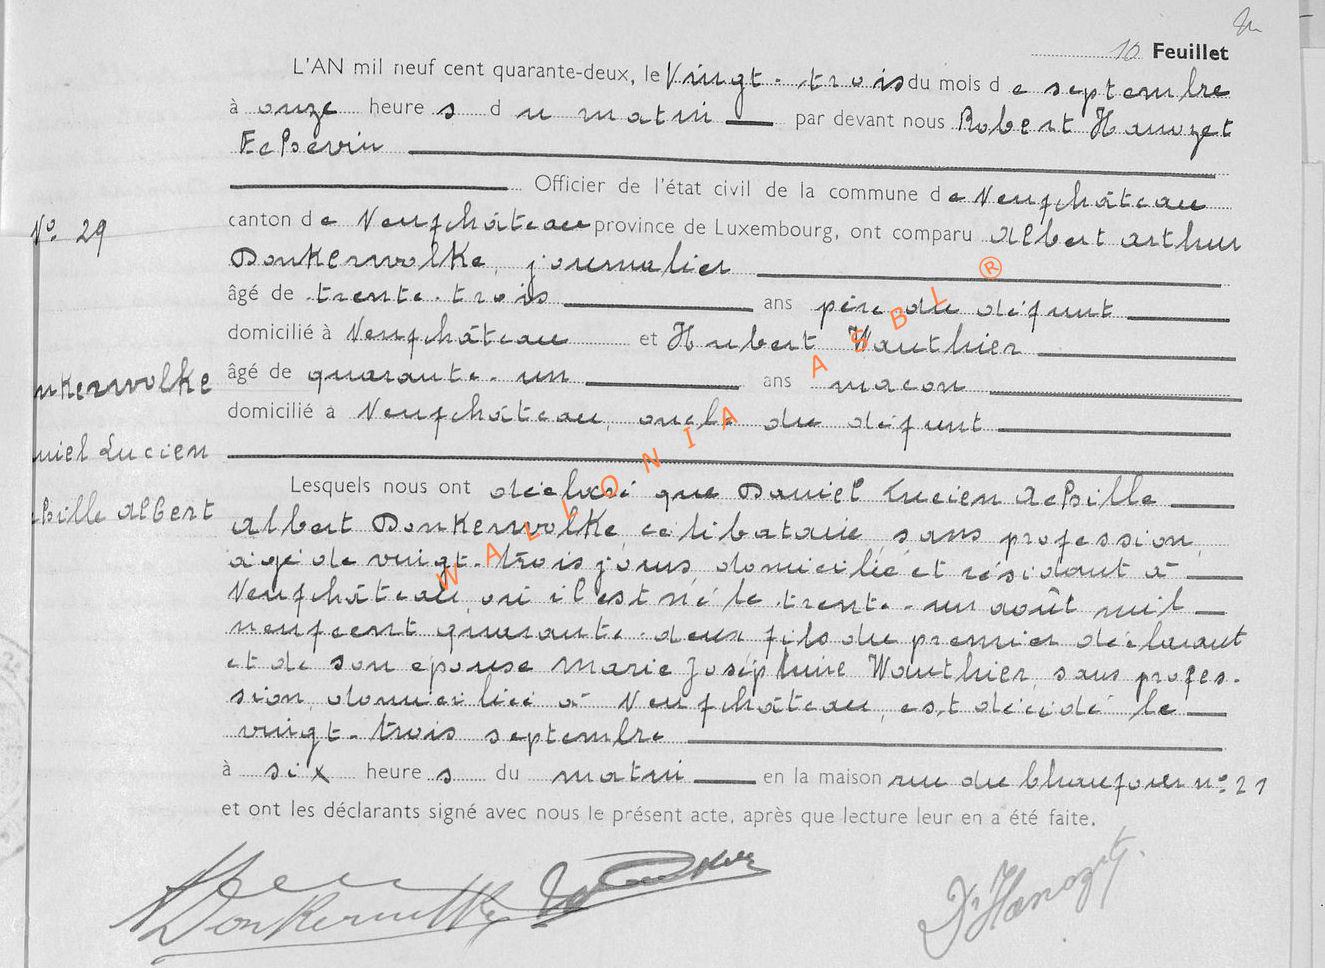 10 Feuillet
L'AN mil neuf cent quarante-deux, le Vingt-trois du mois de septembre
à onze heures du matin par devant nous Robert Hanozet
Echevin
Officier de l'état civil de la commune de Neufchâteau
canton de Neufchâteau province de Luxembourg, ont comparu Albert Arthur
Donkerwolke, journalier
âgé de trente-trois ans père du défunt
domicilié à Neufchâteau et Hubert Wauthier
âgé de quarante-un ans maçon
domicilié à Neufchâteau, oncle du défunt
Lesquels nous ont déclaré que Daniel Lucien Achille
Albert Donkerwolke, célibataire, sans profession,
âgé de vingt-trois jours, domicilié et résidant à
Neufchâteau, où il est né le trente-un août mil
neuf cent quarante-deux fils du premier déclarant
et de son epouse Marie Joséphine Wauthier, sans profes-
sion, domiciliée à Neufchâteau, est décédé le
vingt-trois septembre
à six heures du matin en la maison rue du Chaufour n° 21
et ont les déclarants signé avec nous le présent acte, après que lecture leur en a été faite.
N° 29
nkerwolke
niel Lucien
chille Albert
WALLONIA ASBL ®
Donkerwolke
Dr Hanozet